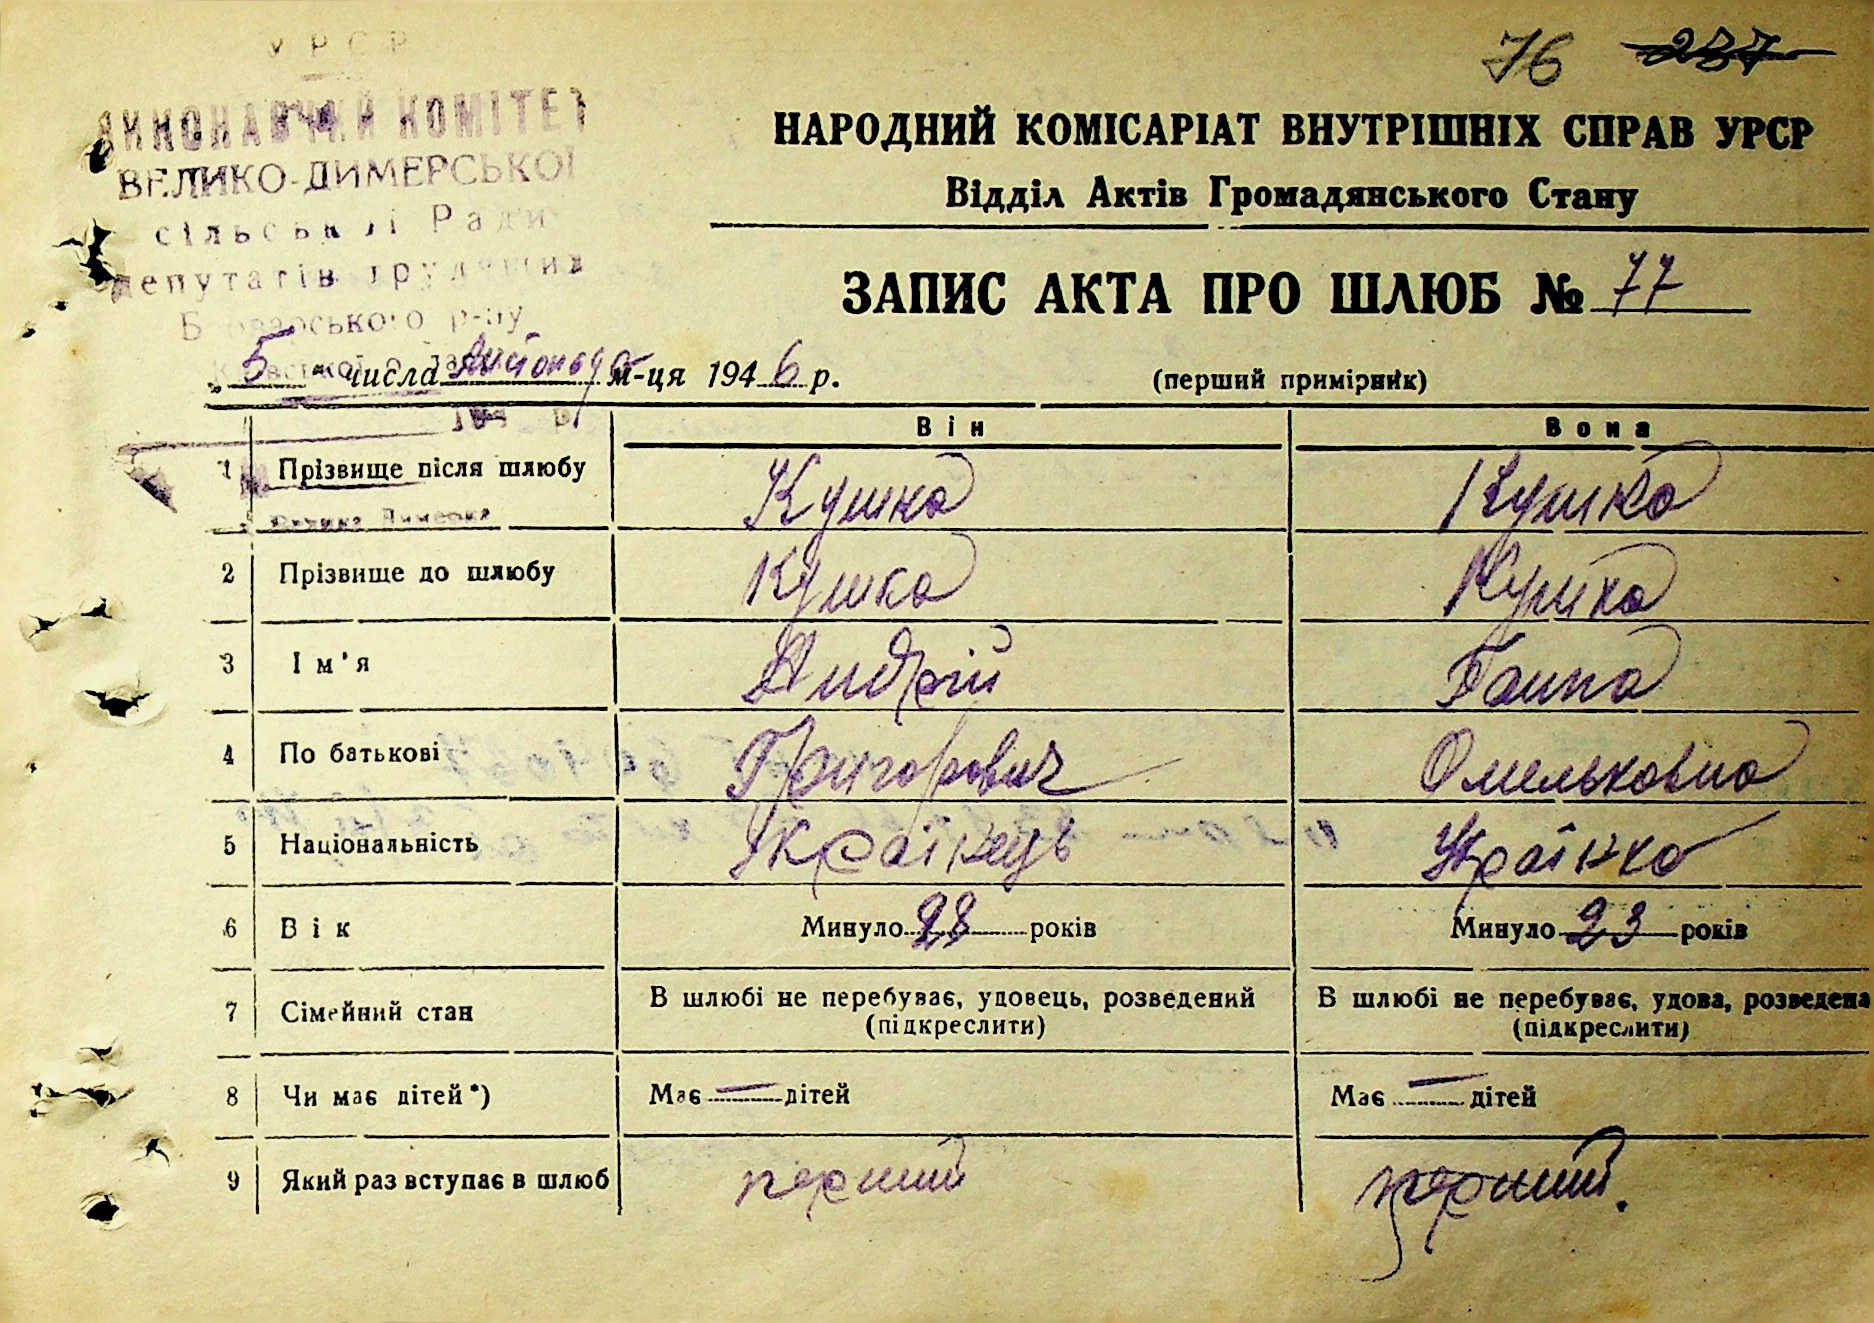 УРСР
ВИКОНАВЧИЙ КОМІТЕТ
ВЕЛИКО-ДИМЕРСЬКОЇ
сільської Ради
депутатів трудящих
Броварського р-ну
76 287
НАРОДНИЙ КОМІСАРІАТ ВНУТРІШНІХ СПРАВ УРСР
Відділ Актів Громадянського Стану
ЗАПИС АКТА ПРО ШЛЮБ № 77
„5" числа листопада м-ця 1946 р.
(перший примірник)
Він Вона
1 Прізвище після шлюбу Кушка Кушка
Велика Димерка
2 Прізвище до шлюбу Кушка Кушка
3 Ім'я Андрій Ганна
4 По батькові Григорович Омельковна
5 Національність Українець Українка
6 Вік Минуло 28 років Минуло 23 років
7 Сімейний стан В шлюбі не перебуває, удовець, розведений В шлюбі не перебуває, удова, розведена
(підкреслити) (підкреслити)
8 Чи має дітей*) Має — дітей Має — дітей
9 Який раз вступає в шлюб перший перший.